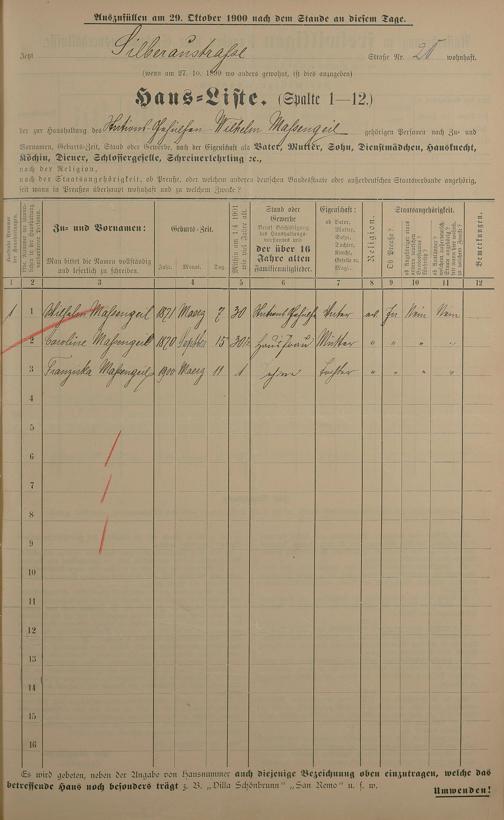 Auszufüllen am 29. Oktober 1900 nach dem Stande an diesem Tage.
Jetzt Silberaustraße Straße Nr. 20 wohnhaft.
(wenn am 27. 10. 1899 wo anders gewohnt, ist dies anzugeben)
Haus-Liste. (Spalte 1—12.)
der zur Haushaltung des Stations-Gehülfen Wilhelm Maßengeil gehörigen Personen nach Zu- und
Vornamen, Geburts-Zeit, Stand oder Gewerbe, nach der Eigenschaft als Vater, Mutter, Sohn, Dienstmädchen, Hausknecht,
Köchin, Diener, Schlossergeselle, Schreinerlehrling ꝛc.,
nach der Religion,
nach der Staatsangehörigkeit, ob Preuße, oder welchem anderen deutschen Bundesstaate oder außerdeutschen Staatsverbande angehörig,
seit wann in Preußen überhaupt wohnhaft und zu welchem Zwecke?
Zu- und Vornamen:
Man bittet die Namen vollständig
und leserlich zu schreiben.
Geburts-Zeit.
Jahr. Monat. Tag.
Mithin am 1/4 1901
wie viel Jahre alt.
Stand oder
Gewerbe
der über 16
Jahre alten
Familienmitglieder.
Eigenschaft:
ob Vater,
Mutter,
Sohn,
Tochter,
Knecht,
Geselle
Magd.
Religion.
Staatsangehörigkeit.
Ob Preuße?
Bemerkungen.
1 2 3 4 5 6 7 8 9 10 11 12
1 1 Wilhelm Maßengeil 1871 Maerz 7 30 Stations-Gehülfe Vater ev. Ja Nein Nein
2 Caroline Maßengeil 1870 15 30 Hausfrau Mutter " " " "
3 Franziska Maßengeil 1900 Maerz 11 1 ohne Tochter " " " "
4
5
6
7
8
9
10
11
12
13
14
15
16
Es wird gebeten, neben der Angabe von Hausnummer auch diejenige Bezeichnung oben einzutragen, welche das
betreffende Haus noch besonders trägt z. B. „Villa Schönbrunn" „San Remo" u. s. w.
Umwenden!